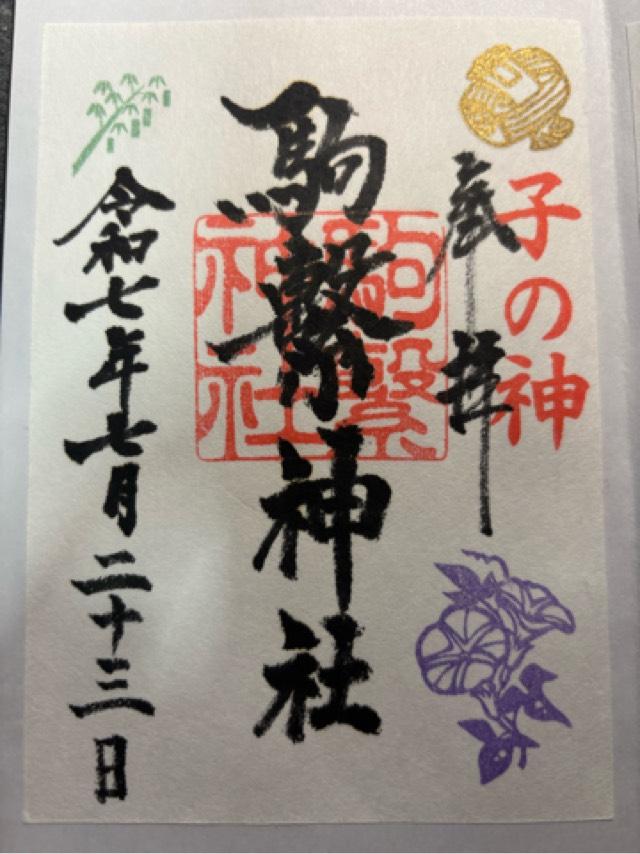 子の神
奉拝
駒繋神社
駒繋神社
令和七年七月二十三日